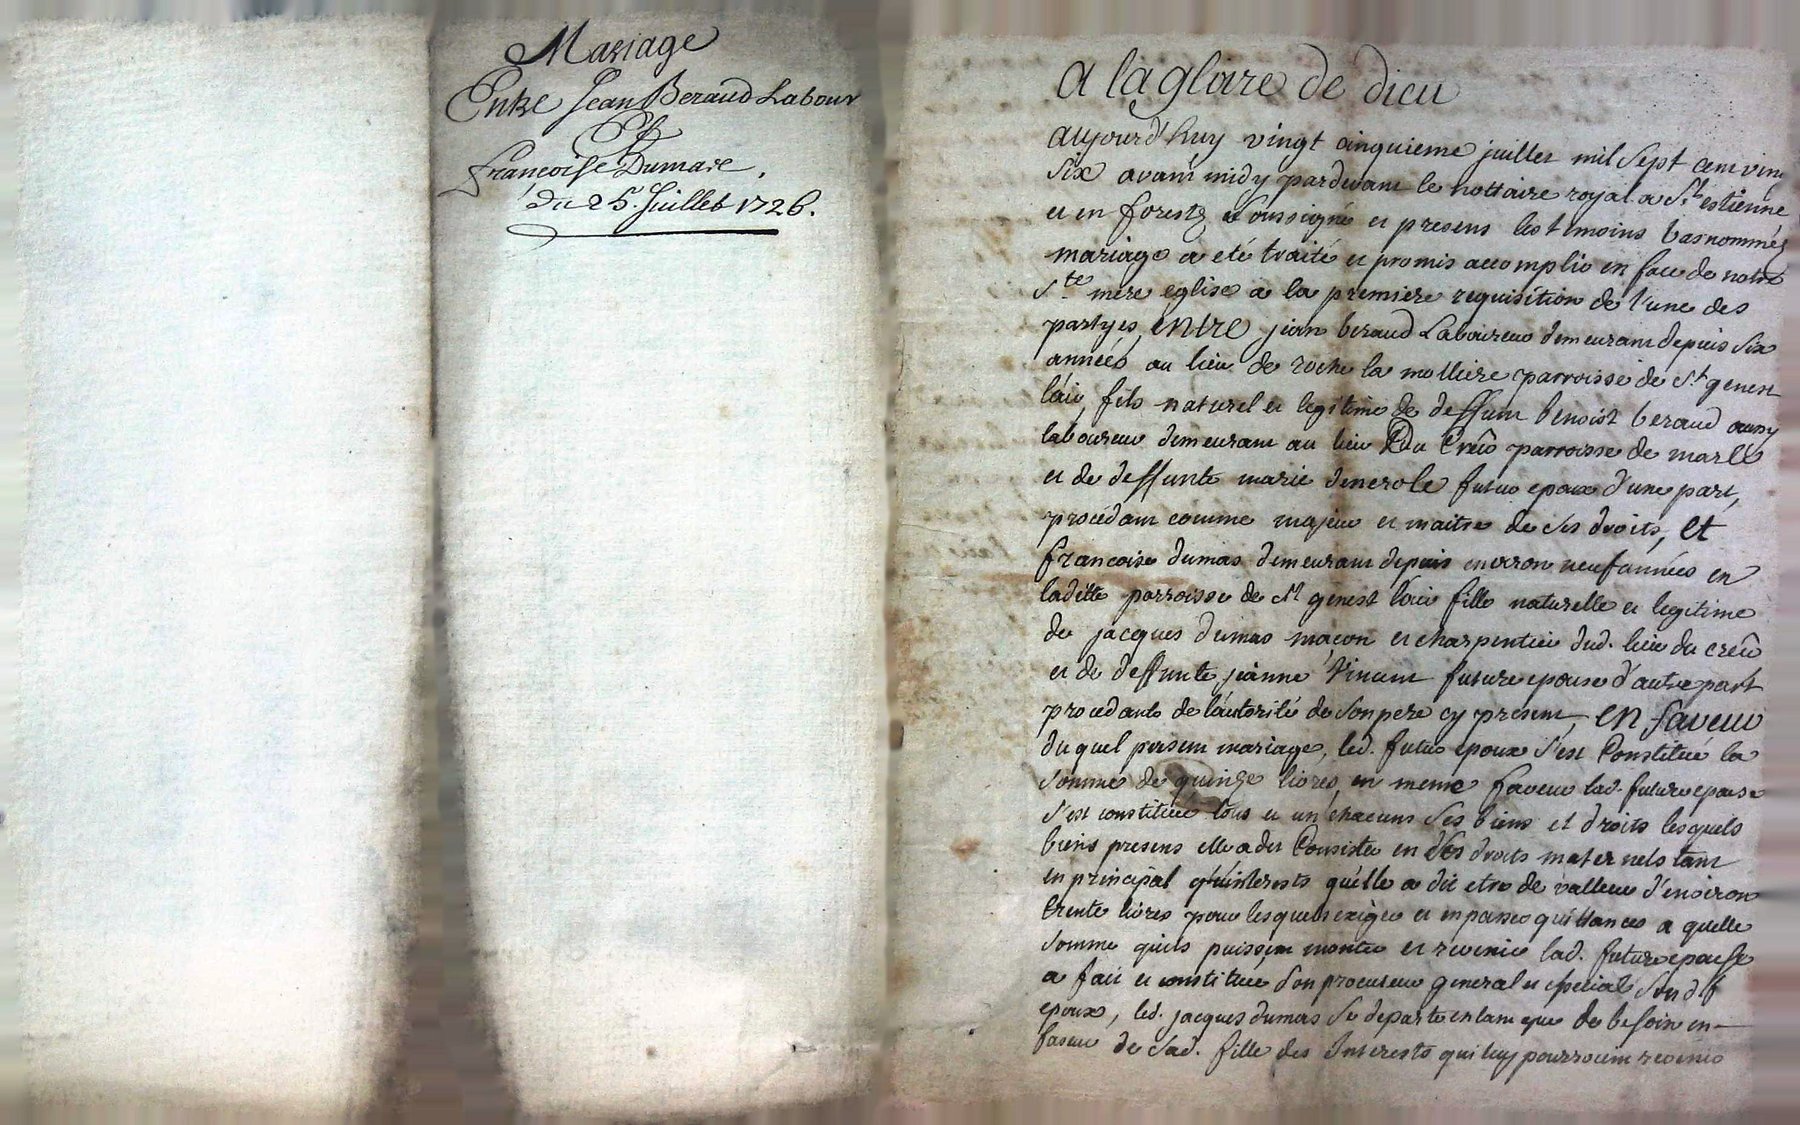 Mariage
Entre Jean Beraud Labour
Et
francoise Dumase.
du 25. Juillet 1726.
A la gloire de dieu
aujourd'huy vingt cinquieme juillet mil sept cent vint
six avant midy pardevant le nottaire royal a St. estienne
et en forestz soussigné et presens les temoins basnommés
mariage a eté traité et promis accomplir en face de notre
ste. mere eglise a la premiere requisition de l'une des
partyes, entre jean beraud Laboureur demeurant depuis six
années au lieu de roche la molliere parroisse de St genest
lair, fils naturel et legitime de deffunt benoist beraud aussy
laboureur demeurant au lieu Du Creu parroisse de marls
et de deffunte marie denerole futur epoux d'une part,
procedant comme majeur et maitre de ses droits, et
francoise dumas demeurant depuis environ neuf années en
laditte parroisse de St genest l'air fille naturelle et legitime
de jacques dumas maçon et charpentier dud. lieu du creu
et de deffunte jeanne Vincent future epouse d'autre part
procedante de l'autorité de son pere cy present, en faveur
du quel present mariage, led. futur epoux s'est Constitué la
somme de quinze livres, en meme faveur lad. future epouse
s'est constituée tous et un chacuns ses biens et droits lesquels
biens presens elle a dit Consister en ses droits maternels tant
en principal qu'interests qu'elle a dit etre de valleur d'environ
trente livres pour lesquels exiger et en passer quittances a quelle
somme qu'ils puissent monter et revenir lad. future epouse
a fait et constitué son procureur general et special sond. f
epoux, led. jacques dumas se departe en tant que de besoin en
faveur de sad. fille des Interests qui luy pourroient revenir